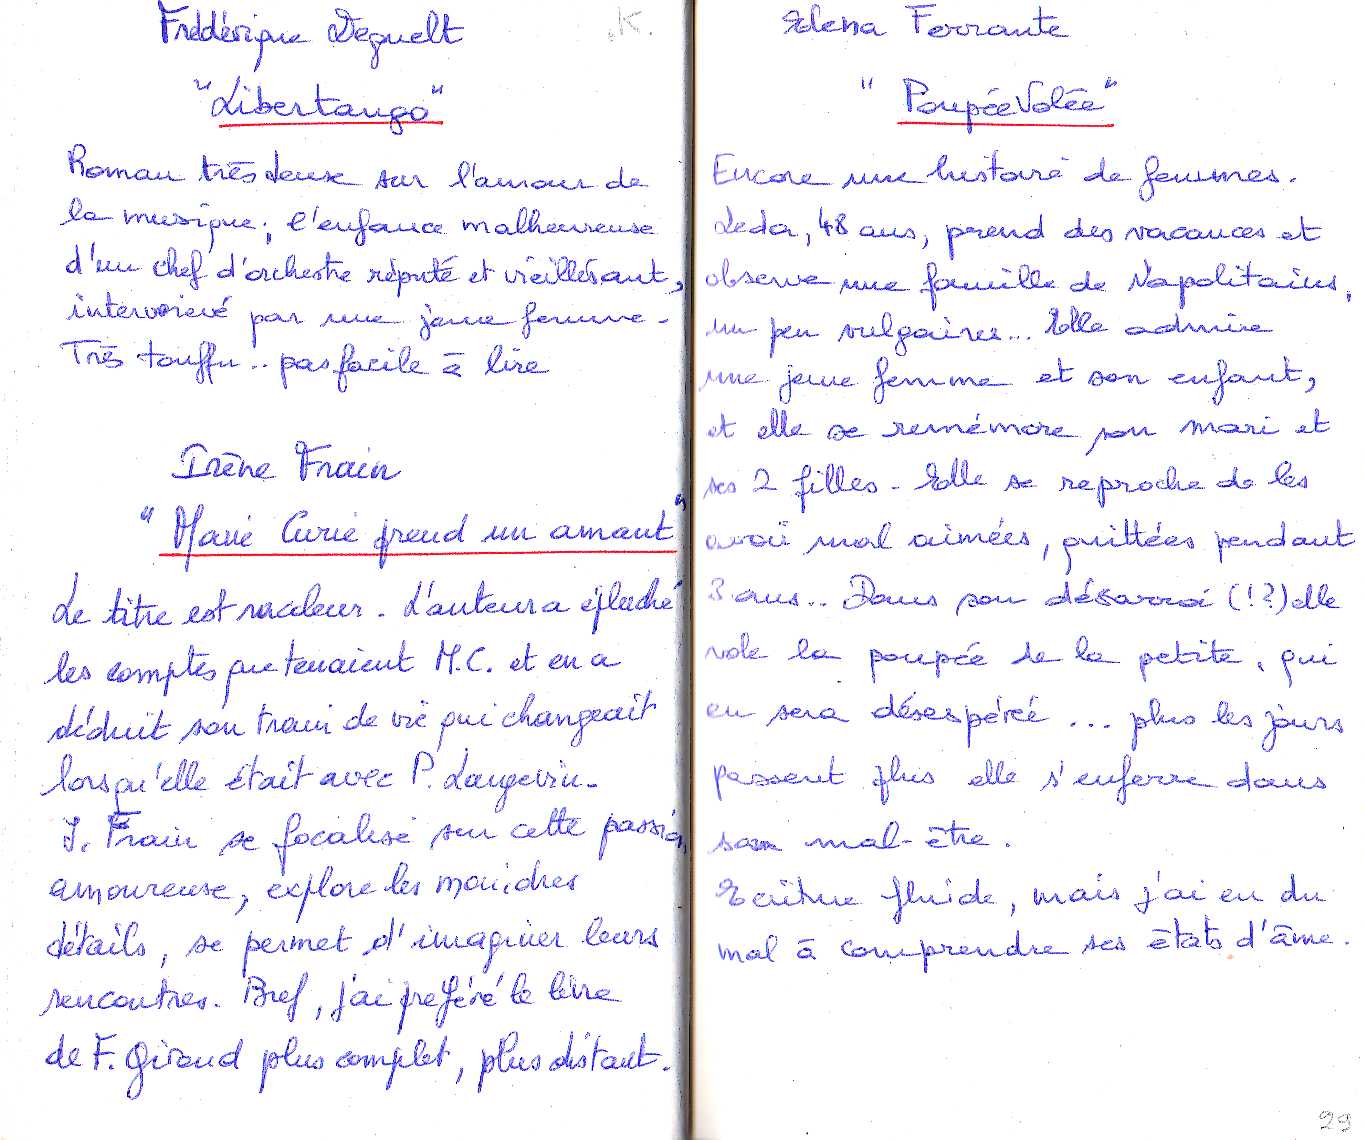 Frédérique Deguelt
K.
"Libertango"
Roman très dense sur l'amour de
la musique, l'enfance malheureuse
d'un chef d'orchestre réputé et vieillissant,
interviewé par une jeune femme.
Très touffu.. pas facile à lire
Irène Frain
"Marie Curie prend un amant"
Le titre est racoleur. L'auteur a épluché
les comptes que tenaient M.C. et en a
déduit son train de vie qui changeait
lorsqu'elle était avec P. Langevin.
I. Frain se focalise sur cette passion
amoureuse, explore les moindres
détails, se permet d'imaginer leurs
rencontres. Bref, j'ai préféré le livre
de F. Giroud plus complet, plus distant.
Elena Ferrante
"Poupée Volée"
Encore une histoire de femmes.
Leda, 48 ans, prend des vacances et
observe une famille de Napolitains,
un peu vulgaires... Elle admire
une jeune femme et son enfant,
et elle se remémore son mari et
ses 2 filles - Elle se reproche de les
avoir mal aimées, quittées pendant
3 ans.. Dans son désarroi (!?) elle
vole la poupée de la petite, qui
en sera désespérée... plus les jours
passent plus elle s'enferre dans
son mal-être.
Ecriture fluide, mais j'ai eu du
mal à comprendre ses états d'âme.
29